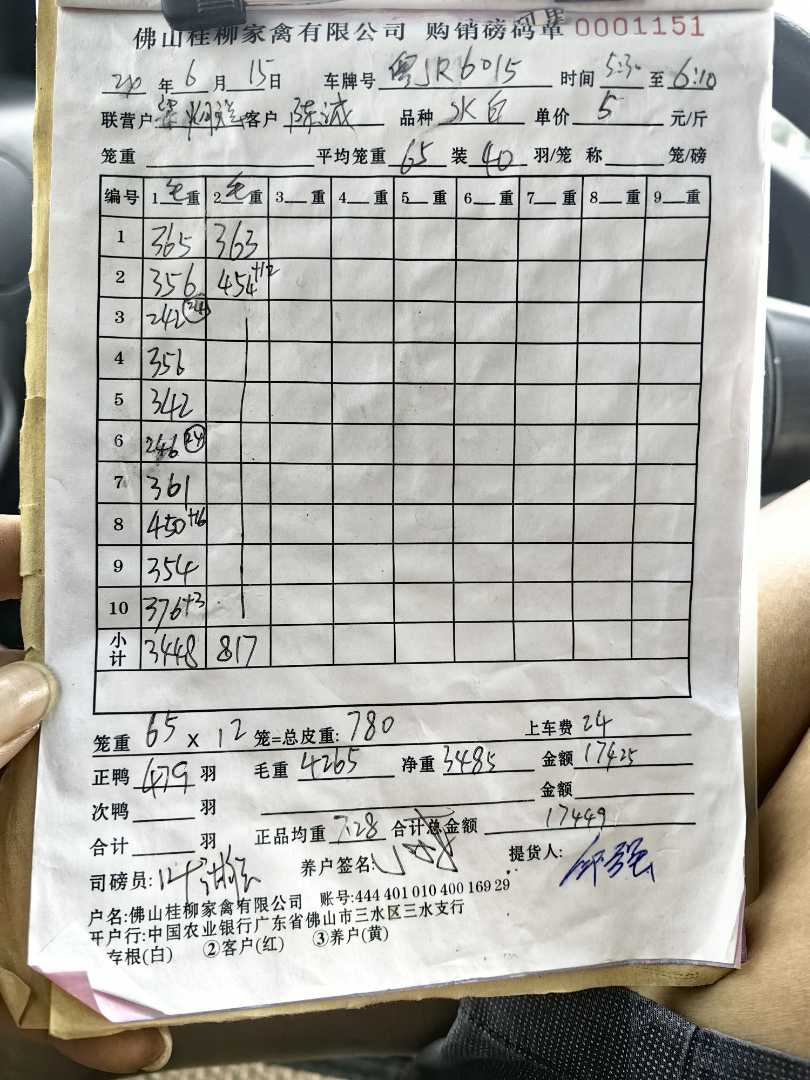 佛山桂柳家禽有限公司 购销磅码单 0001151
年 6 月 15 日 车牌号 粤JR6015 时间 5:30 至 6:10
联营户 客户 陈诚 品种 水白 单价 5 元/斤
笼重 平均笼重 65 装 40 羽/笼 称 笼/磅
编号 1 毛 重 2 毛 重 3 重 4 重 5 重 6 重 7 重 8 重 9 重
1 365 363
2 356 454+12
3 242 (24)
4 356
5 342
6 246 (24)
7 361
8 450+16
9 354
10 376+3
小计 3448 817
笼重 65 x 12 笼=总皮重: 780 上车费 24
正鸭 479 羽 毛重 4265 净重 3485 金额 17425
次鸭 羽 金额
合计 羽 正品均重 7.28 合计总金额 17449
司磅员: 养户签名: 提货人:
户名:佛山桂柳家禽有限公司 账号:444 401 010 400 169 29
开户行:中国农业银行广东省佛山市三水区三水支行
存根(白) ②客户(红) ③养户(黄)